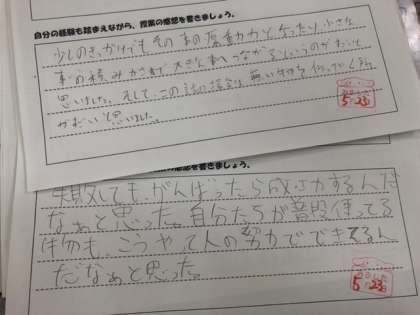 自分の経験も踏まえながら、授業の感想を書きましょう。
少しのきっかけでもその事の原動力となったり、小さな
事の積みかさねが大きな事へつながるというのがすごいと
思いました。そして、この話の
がすごいと思いました。
5.23
感想を書きましょう。
失敗しても、がんばったら成功するんだ
なぁと思った。自分たちが普段使ってる
物も、こうやって人の努力でできてるん
だなぁと思った。
5.23